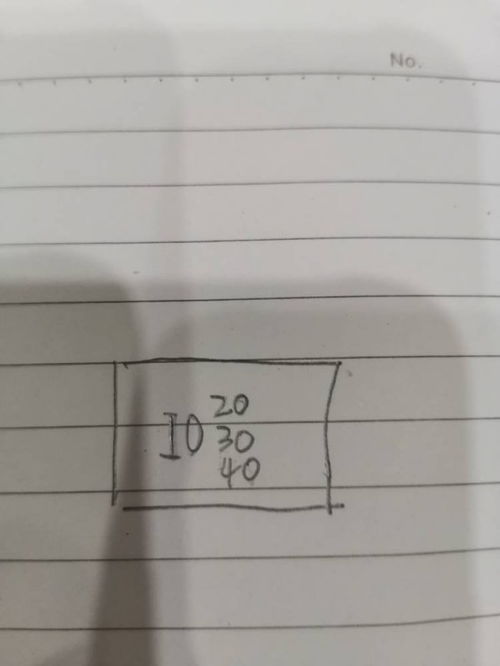 No.
20
10 30
40